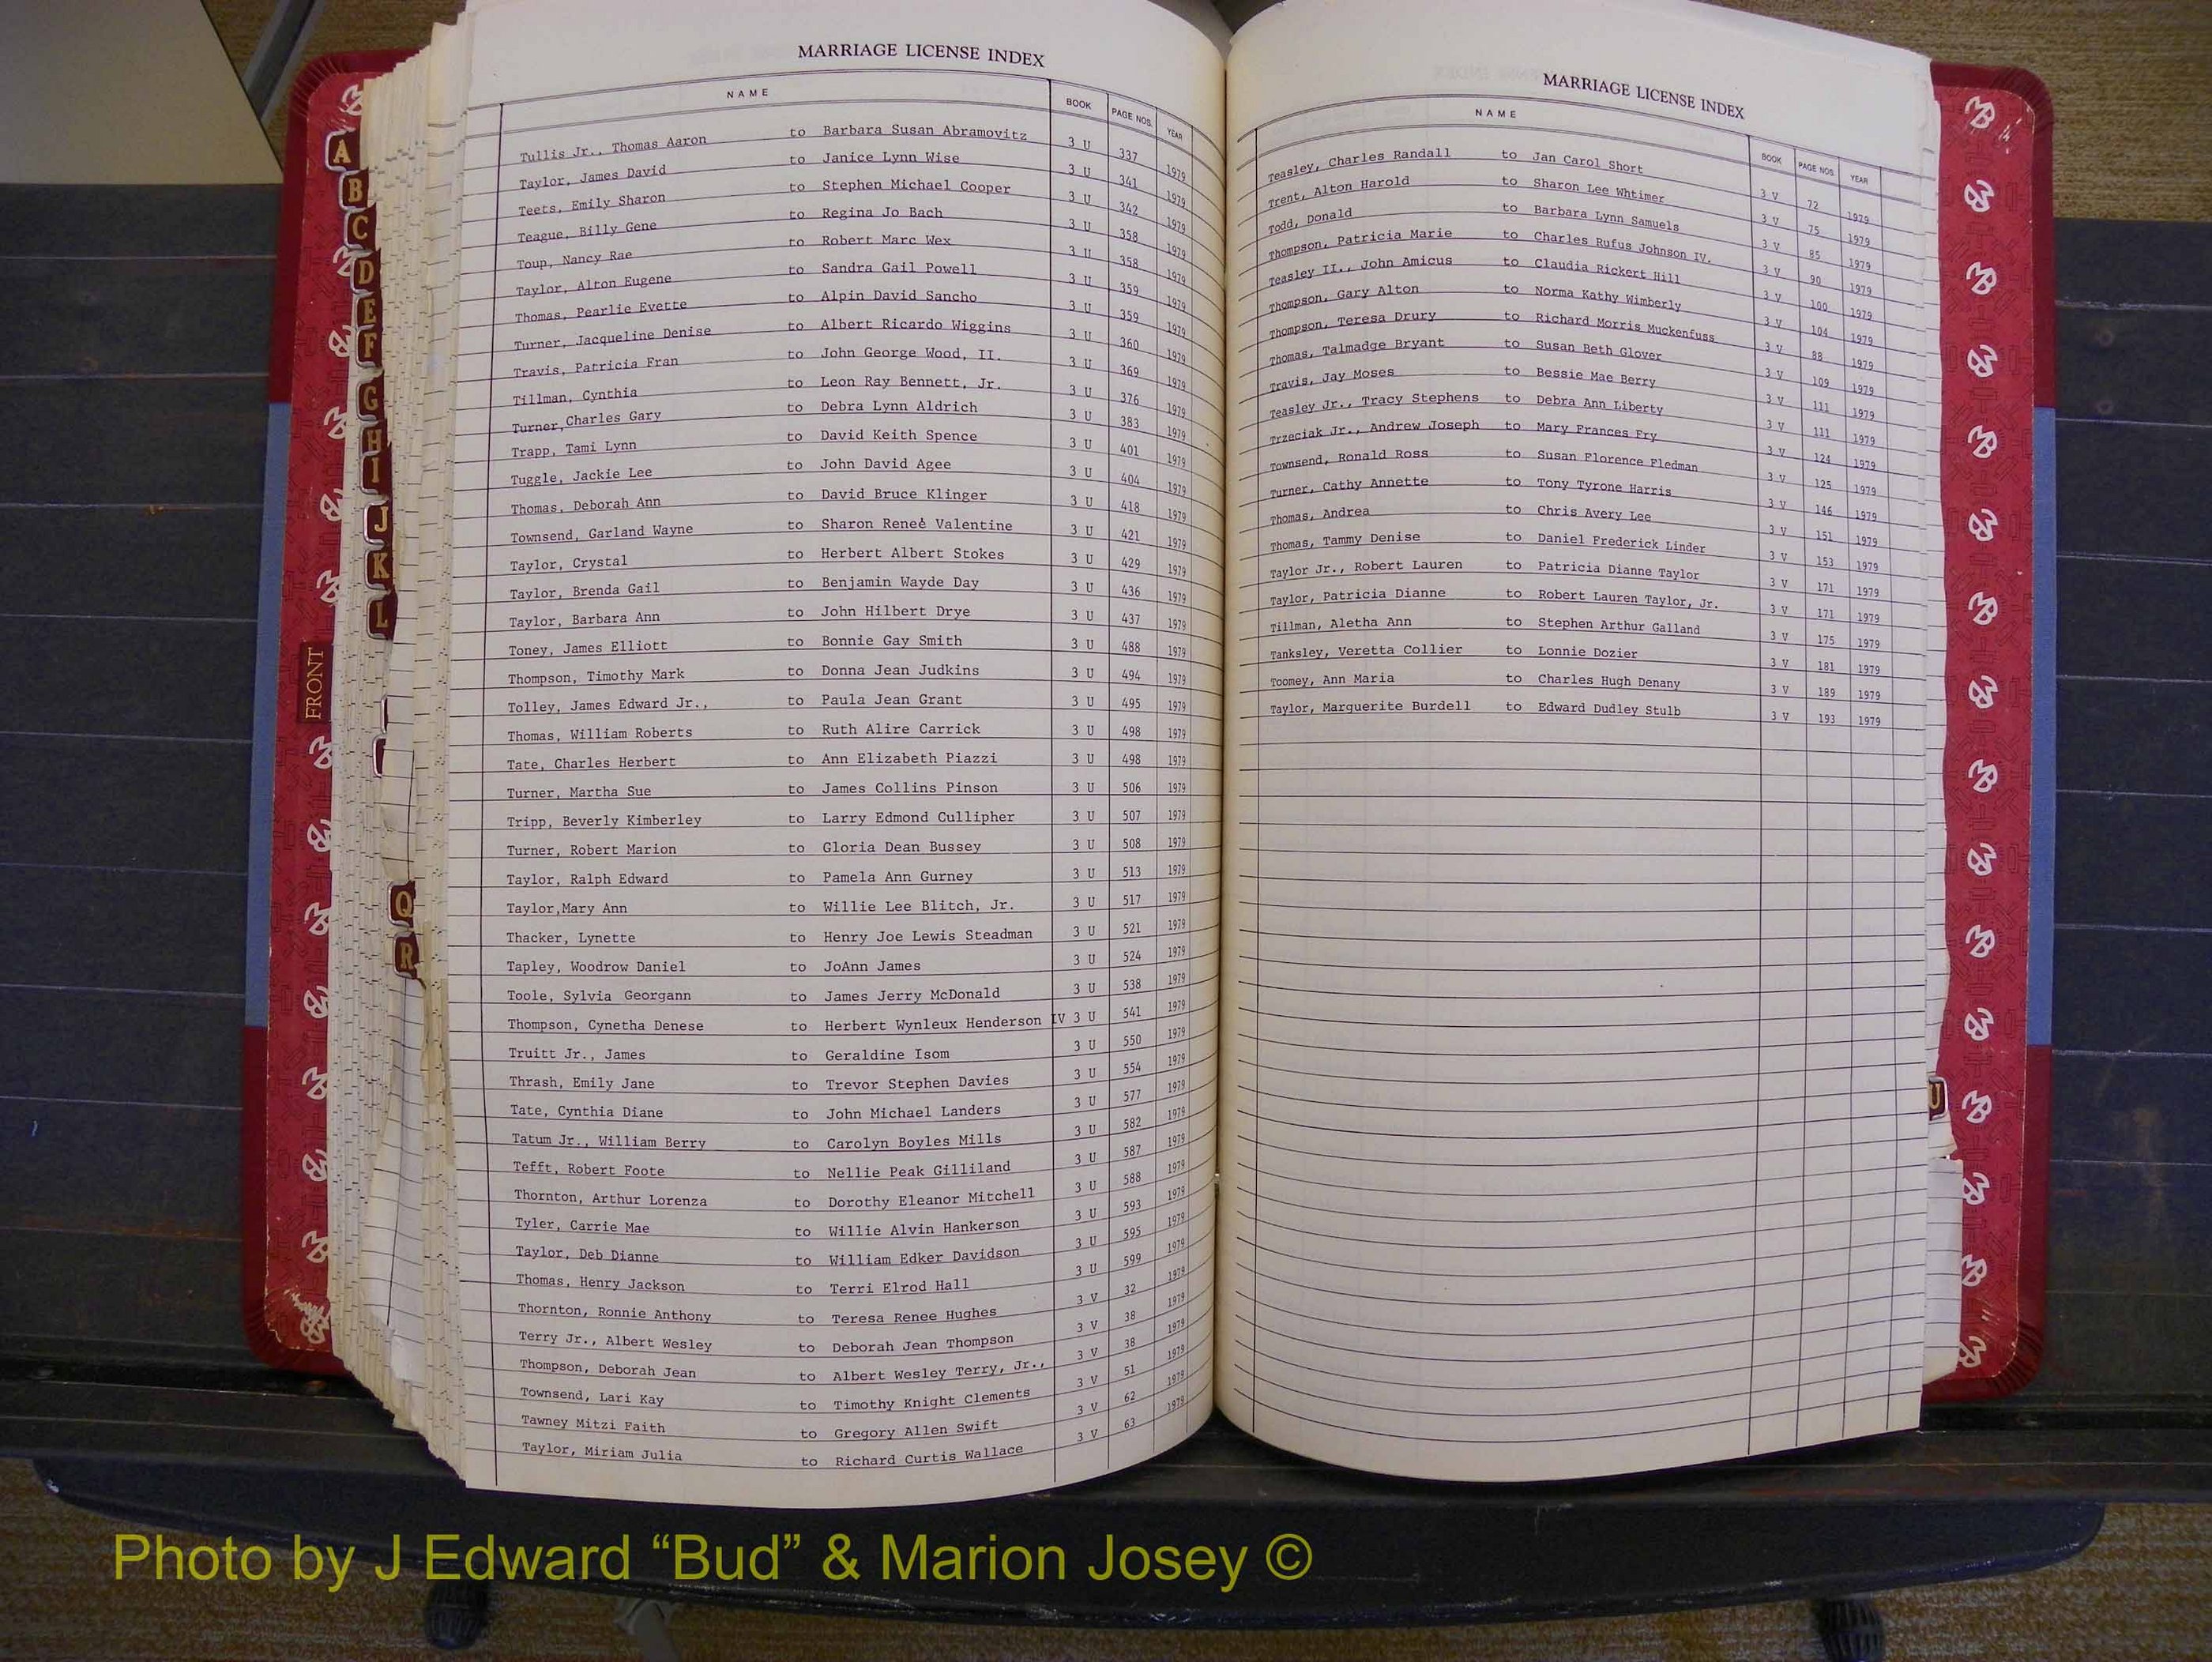 MARRIAGE LICENSE INDEX
NAME BOOK PAGE NOS. YEAR
Tullis Jr., Thomas Aaron to Barbara Susan Abramovitz 3 U 337 1979
Taylor, James David to Janice Lynn Wise 3 U 341 1979
Teets, Emily Sharon to Stephen Michael Cooper 3 U 342 1979
Teague, Billy Gene to Regina Jo Bach 3 U 358 1979
Toup, Nancy Rae to Robert Marc Wex 3 U 358 1979
Taylor, Alton Eugene to Sandra Gail Powell 3 U 359 1979
Thomas, Pearlie Evette to Alpin David Sancho 3 U 359 1979
Turner, Jacqueline Denise to Albert Ricardo Wiggins 3 U 360 1979
Travis, Patricia Fran to John George Wood, II. 3 U 369 1979
Tillman, Cynthia to Leon Ray Bennett, Jr. 3 U 376 1979
Turner, Charles Gary to Debra Lynn Aldrich 3 U 383 1979
Trapp, Tami Lynn to David Keith Spence 3 U 401 1979
Tuggle, Jackie Lee to John David Agee 3 U 404 1979
Thomas, Deborah Ann to David Bruce Klinger 3 U 418 1979
Townsend, Garland Wayne to Sharon Reneé Valentine 3 U 421 1979
Taylor, Crystal to Herbert Albert Stokes 3 U 429 1979
Taylor, Brenda Gail to Benjamin Wayde Day 3 U 436 1979
Taylor, Barbara Ann to John Hilbert Drye 3 U 437 1979
Toney, James Elliott to Bonnie Gay Smith 3 U 488 1979
Thompson, Timothy Mark to Donna Jean Judkins 3 U 494 1979
Tolley, James Edward Jr., to Paula Jean Grant 3 U 495 1979
Thomas, William Roberts to Ruth Alire Carrick 3 U 498 1979
Tate, Charles Herbert to Ann Elizabeth Piazzi 3 U 498 1979
Turner, Martha Sue to James Collins Pinson 3 U 506 1979
Tripp, Beverly Kimberley to Larry Edmond Cullipher 3 U 507 1979
Turner, Robert Marion to Gloria Dean Bussey 3 U 508 1979
Taylor, Ralph Edward to Pamela Ann Gurney 3 U 513 1979
Taylor,Mary Ann to Willie Lee Blitch, Jr. 3 U 517 1979
Thacker, Lynette to Henry Joe Lewis Steadman 3 U 521 1979
Tapley, Woodrow Daniel to JoAnn James 3 U 524 1979
Toole, Sylvia Georgann to James Jerry McDonald 3 U 538 1979
Thompson, Cynetha Denese to Herbert Wynleux Henderson IV 3 U 541 1979
Truitt Jr., James to Geraldine Isom 3 U 550 1979
Thrash, Emily Jane to Trevor Stephen Davies 3 U 554 1979
Tate, Cynthia Diane to John Michael Landers 3 U 577 1979
Tatum Jr., William Berry to Carolyn Boyles Mills 3 U 582 1979
Tefft, Robert Foote to Nellie Peak Gilliland 3 U 587 1979
Thornton, Arthur Lorenza to Dorothy Eleanor Mitchell 3 U 588 1979
Tyler, Carrie Mae to Willie Alvin Hankerson 3 U 593 1979
Taylor, Deb Dianne to William Edker Davidson 3 U 595 1979
Thomas, Henry Jackson to Terri Elrod Hall 3 U 599 1979
Thornton, Ronnie Anthony to Teresa Renee Hughes 3 V 32 1979
Terry Jr., Albert Wesley to Deborah Jean Thompson 3 V 38 1979
Thompson, Deborah Jean to Albert Wesley Terry, Jr., 3 V 38 1979
Townsend, Lari Kay to Timothy Knight Clements 3 V 51 1979
Tawney Mitzi Faith to Gregory Allen Swift 3 V 62 1979
Taylor, Miriam Julia to Richard Curtis Wallace 3 V 63 1979
MARRIAGE LICENSE INDEX
NAME BOOK PAGE NOS. YEAR
Teasley, Charles Randall to Jan Carol Short 3 V 72 1979
Trent, Alton Harold to Sharon Lee Whtimer 3 V 75 1979
Todd, Donald to Barbara Lynn Samuels 3 V 85 1979
Thompson, Patricia Marie to Charles Rufus Johnson IV. 3 V 90 1979
Teasley II., John Amicus to Claudia Rickert Hill 3 V 100 1979
Thompson, Gary Alton to Norma Kathy Wimberly 3 V 104 1979
Thompson, Teresa Drury to Richard Morris Muckenfuss 3 V 88 1979
Thomas, Talmadge Bryant to Susan Beth Glover 3 V 109 1979
Travis, Jay Moses to Bessie Mae Berry 3 V 111 1979
Teasley Jr., Tracy Stephens to Debra Ann Liberty 3 V 111 1979
Trzeciak Jr., Andrew Joseph to Mary Frances Fry 3 V 124 1979
Townsend, Ronald Ross to Susan Florence Fledman 3 V 125 1979
Turner, Cathy Annette to Tony Tyrone Harris 3 V 146 1979
Thomas, Andrea to Chris Avery Lee 3 V 151 1979
Thomas, Tammy Denise to Daniel Frederick Linder 3 V 153 1979
Taylor Jr., Robert Lauren to Patricia Dianne Taylor 3 V 171 1979
Taylor, Patricia Dianne to Robert Lauren Taylor, Jr. 3 V 171 1979
Tillman, Aletha Ann to Stephen Arthur Galland 3 V 175 1979
Tanksley, Veretta Collier to Lonnie Dozier 3 V 181 1979
Toomey, Ann Maria to Charles Hugh Denany 3 V 189 1979
Taylor, Marguerite Burdell to Edward Dudley Stulb 3 V 193 1979
A
B
C
D
E
F
G
H
I
J
K
L
Q
R
U
FRONT
Photo by J Edward “Bud” & Marion Josey ©